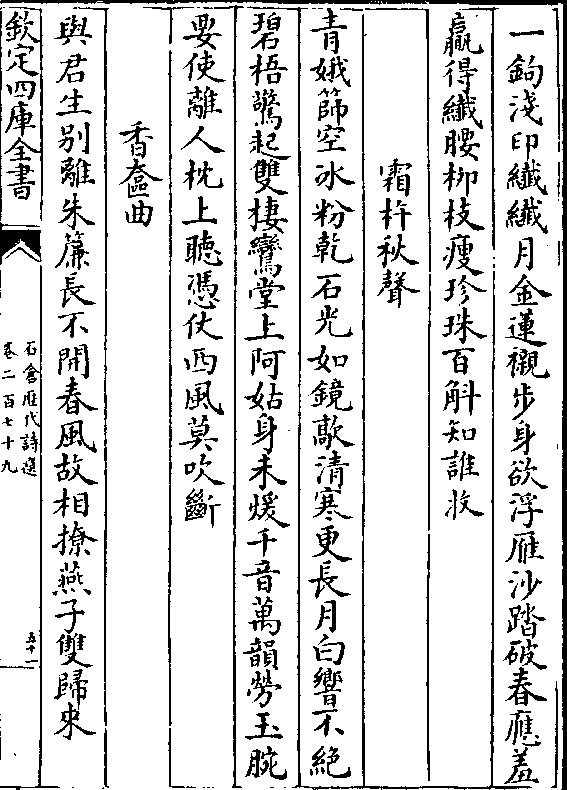 一鉤淺印纖纖月金蓮襯步身欲浮雁沙踏破春應羞
贏得纖腰栁枝瘦珍珠百斛知誰收
霜杵秋聲
青娥篩空冰粉乾石光如鏡敲清寒更長月白響不絕
碧梧驚起雙棲鸞堂上阿姑身未煖千音萬韻勞玉腕
要使離人枕上聽憑仗西風莫吹斷
香奩曲
與君生別離朱簾長不開春風故相撩燕子雙歸來
欽定四庫全書
石倉歴代詩選
卷二百七十九
五十一